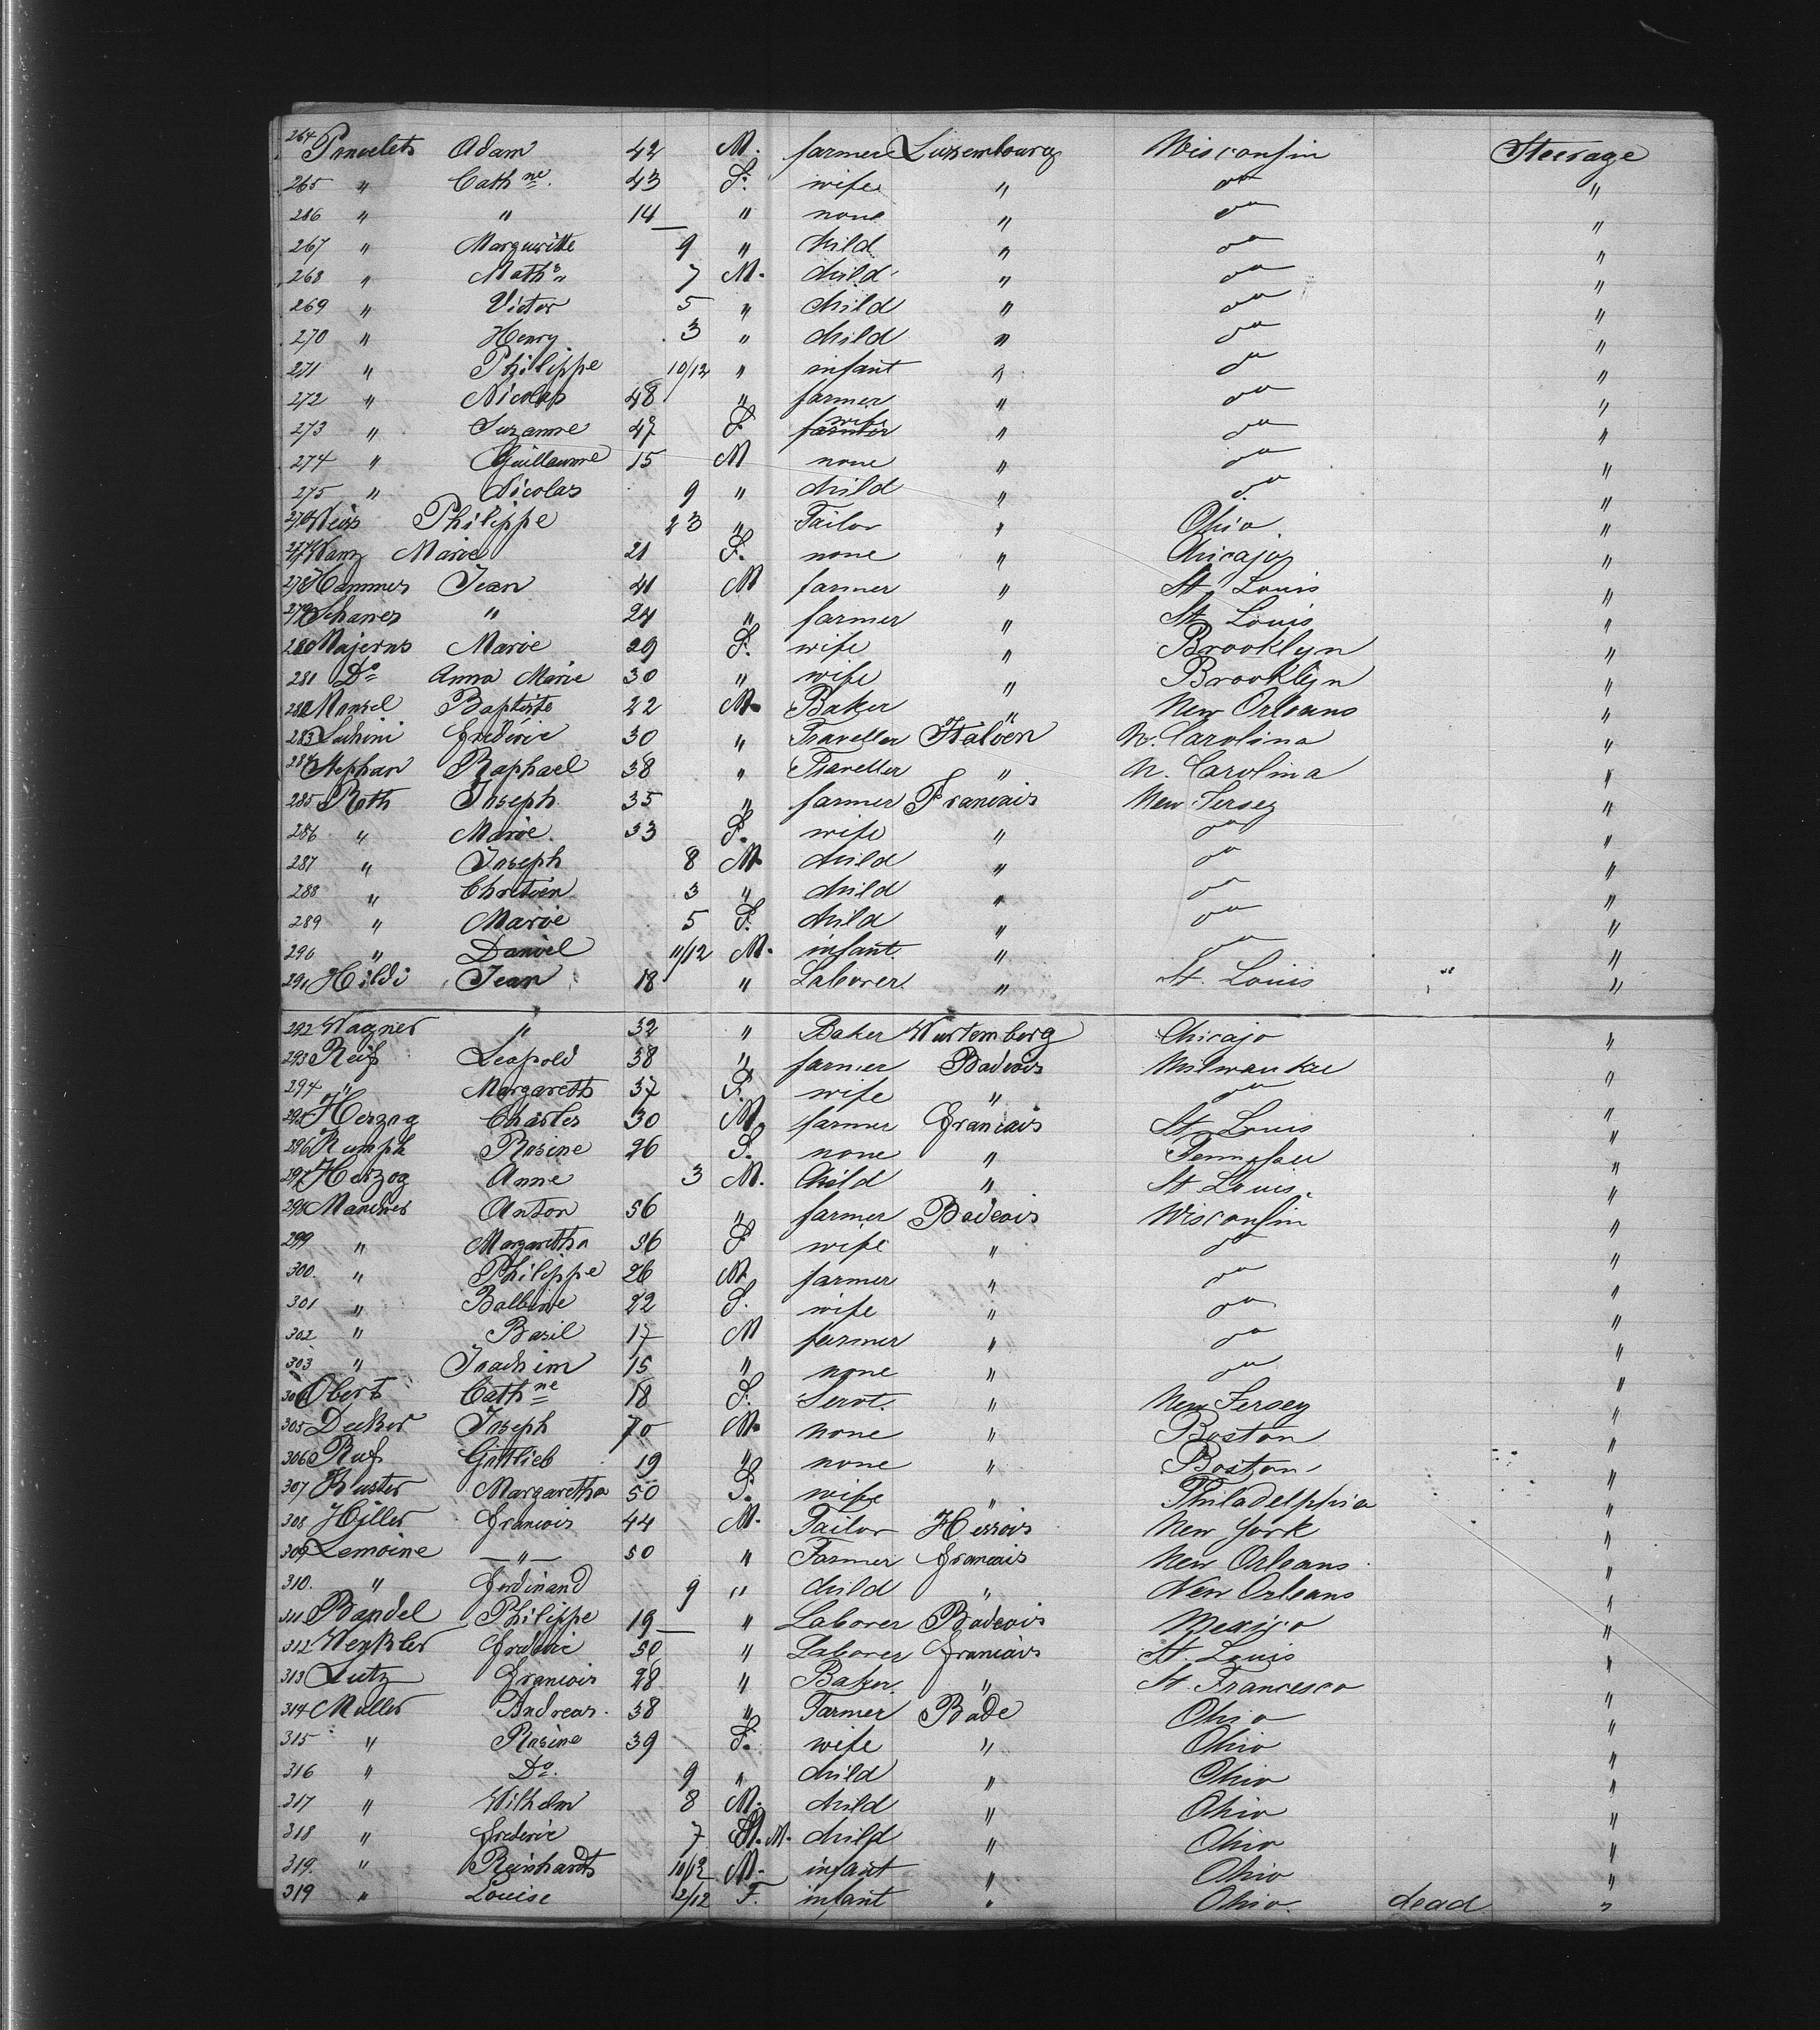 264 Poncelets Adam 42 M. farmer Luxembourg Wisconsin Steerage
265 " Cathne. 43 F. wife " do "
286 " " 14 " none " do "
267 " Marguritte 9 " child " do "
268 " Maths " 7 M. child " do "
269 " Victor 5 " child " do "
270 " Henry 3 " child " do "
271 " Philippe 10/12 " infant " do "
272 " Nicolas 48 " farmer " do "
273 " Suzanne 47 F wife farmer " do "
274 " Guillaume 15 M none " do "
275 " Nicolas 9 " child " do "
276 Weis Philippe 23 " Tailor " Ohio "
277 Wanz Marie 21 F. none " Chicajo "
278 Hammes Jean 41 M farmer " St Louis "
279 Schanes " 24 " farmer " St Louis "
280 Majerus Marie 29 F. wife " Brooklyn "
281 Do Anna Marie 30 " wife " Brooklyn "
282 Mansel Baptiste 22 M. Baker " New Orleans "
283 Luchini Frederic 30 " Traveller Italien N. Carolina "
284 Stephan Raphael 38 " Traveller " N. Carolina "
285 Roth Joseph 35 " farmer Francais New Jersey "
286 " Marie. 33 F. wife " do "
287 " Joseph 8 M. child " do "
288 " Chretien 3 " child " do "
289 " Marie 5 F. child " do "
290 " Daniel 11/12 M. infant " do "
291 Hildi Jean 18 " Laborer " St. Louis "
292 Wagner " 32 " Baker Wurtemberg Chicajo "
293 Reif Leopold 38 " farmer Badeois Milwaukee "
294 " Margareth 37 F. wife " do "
295 Herzog Charles 30 M. farmer Francais St Louis "
296 Rumph Rosine 26 F. none " "
297 Herzog Anne 3 M. Child " St Louis. "
298 Marcher Anton 56 " farmer Badeois Wisconsin "
299 " Margaretha 56 F wife " do "
300. " Philippe 26 M. farmer " do "
301 " Balbine 22 F. wife " do "
302 " Basil 17 M farmer " do "
303 " Joachim 15 " none " do "
304 Obert Cathne 18 F. Servt. " New Jersey "
305 Decker Joseph 70 M. none " Boston "
306 Ruf Gottlieb 19 " none " Boston "
307 Kuster Margaretha 50 F. wife " Philadelphia "
308 Hiller Francois 44 M. Tailor Hessois New York "
309 Lemoine " 50 " Farmer Francais New Orleans. "
310. " Ferdinand 9 " child " New Orleans "
311 Bandel Philippe 19 " Laborer Badeois Mexico "
312 Frederic 30 " Laborer Francais St. Louis "
313 Lutz Francois 28 " Baker. " St. Francesco "
314 Muller Andreas. 38 " Farmer Bade Ohio "
315 " Rosine 39 F. wife " Ohio "
316 " Do. 9 " child " Ohio "
317 " Wilhelm 8 M. child " Ohio "
318 " Frederic 7 M. M. child " Ohio "
319. " Reinhardt 10/12 M. infant " Ohio "
319 " Louise 2/12 F. infant " Ohio. dead "